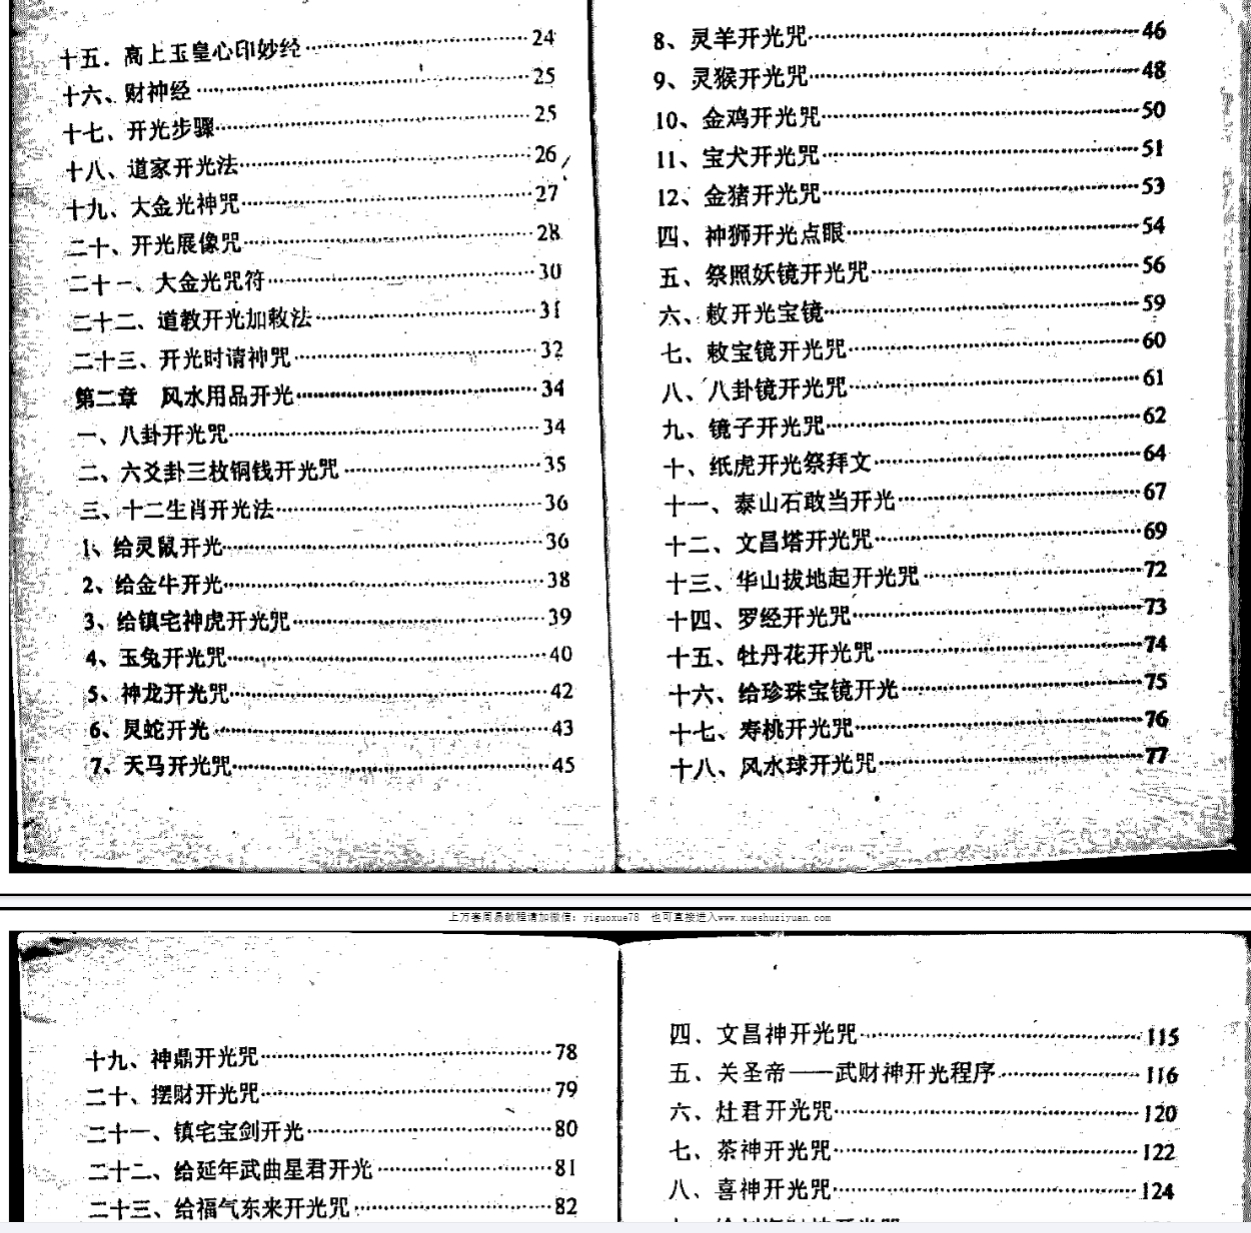 十五．高上玉皇心印妙经 24
十六、财神经 25
十七、开光步骤 25
十八、道家开光法 26
十九、大金光神咒 27
二十、开光展像咒 28
二十一、大金光咒符 30
二十二、道教开光加敕法 31
二十三、开光时请神咒 32
第二章 风水用品开光 34
一、八卦开光咒 34
二、六爻卦三枚铜钱开光咒 35
三、十二生肖开光法 36
1、给灵鼠开光 36
2、给金牛开光 38
3、给镇宅神虎开光咒 39
4、玉兔开光咒 40
5、神龙开光咒 42
6、灵蛇开光 43
7、天马开光咒 45
8、灵羊开光咒 46
9、灵猴开光咒 48
10、金鸡开光咒 50
11、宝犬开光咒 51
12、金猪开光咒 53
四、神狮开光点眼 54
五、祭照妖镜开光咒 56
六、敕开光宝镜 59
七、敕宝镜开光咒 60
八、八卦镜开光咒 61
九、镜子开光咒 62
十、纸虎开光祭拜文 64
十一、泰山石敢当开光 67
十二、文昌塔开光咒 69
十三、华山拔地起开光咒 72
十四、罗经开光咒 73
十五、牡丹花开光咒 74
十六、给珍珠宝镜开光 75
十七、寿桃开光咒 76
十八、风水球开光咒 77
上万套周易教程请加微信：yiguoxue78 也可直接进入www.xueshuziyuan.com
十九、神鼎开光咒 78
二十、摆财开光咒 79
二十一、镇宅宝剑开光 80
二十二、给延年武曲星君开光 81
二十三、给福气东来开光咒 82
四、文昌神开光咒 115
五、关圣帝——武财神开光程序 116
六、灶君开光咒 120
七、茶神开光咒 122
八、喜神开光咒 124